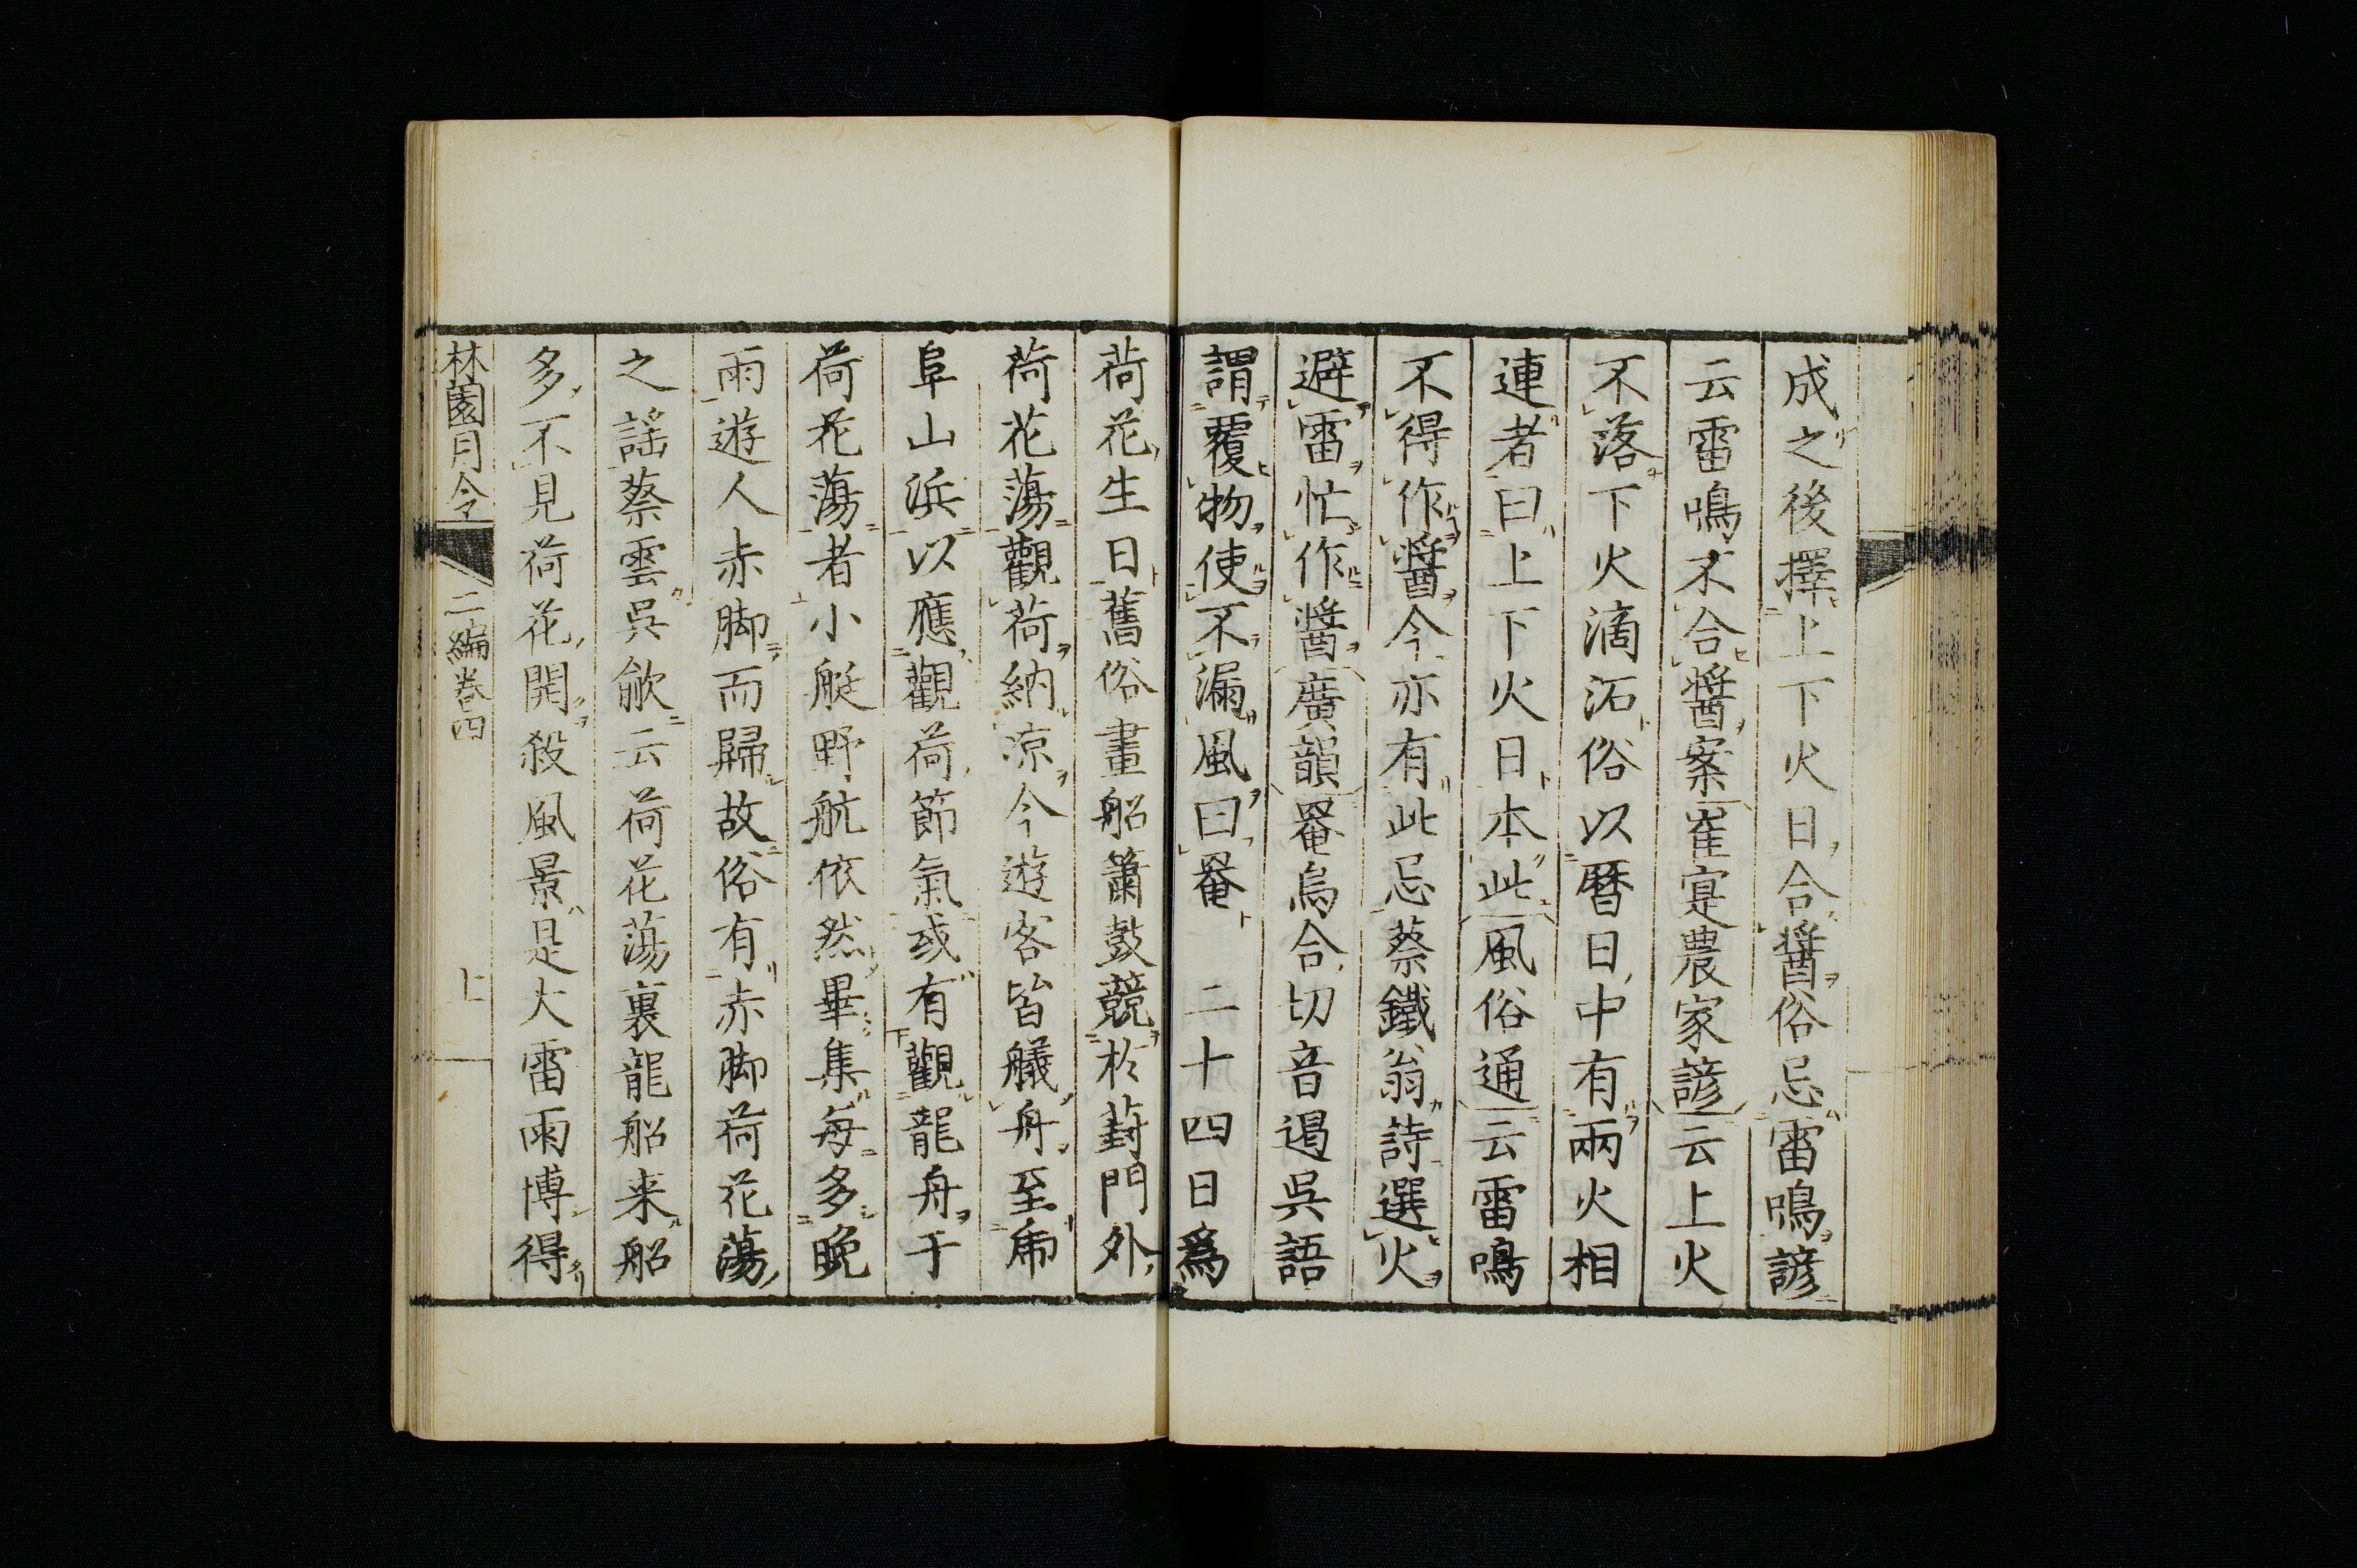 成之後擇上下火日合醬俗忌雷鳴諺
云雷鳴不合醬案崔寔農家諺云上火
不落下火滴沰俗以暦日中有兩火相
連者曰上下火日本此風俗通云雷鳴
不得作醬今亦有此忌蔡鐵翁詩選火
避雷忙作醬廣韻罨烏合切音遏吳語
謂覆物使不漏風曰罨 二十四日爲
荷花生日舊俗畫船簫鼓競於葑門外
荷花蕩觀荷納凉今遊客皆艤舟至虎
阜山浜以應觀荷節氣或有觀龍舟于
荷花蕩者小艇野航依然畢集每多晚
雨遊人赤脚而歸故俗有赤脚荷花蕩
之謡蔡雲吳歈云荷花蕩裏龍船来船
多不見荷花開殺風景是大雷雨博得
林園月令 二編卷四 上